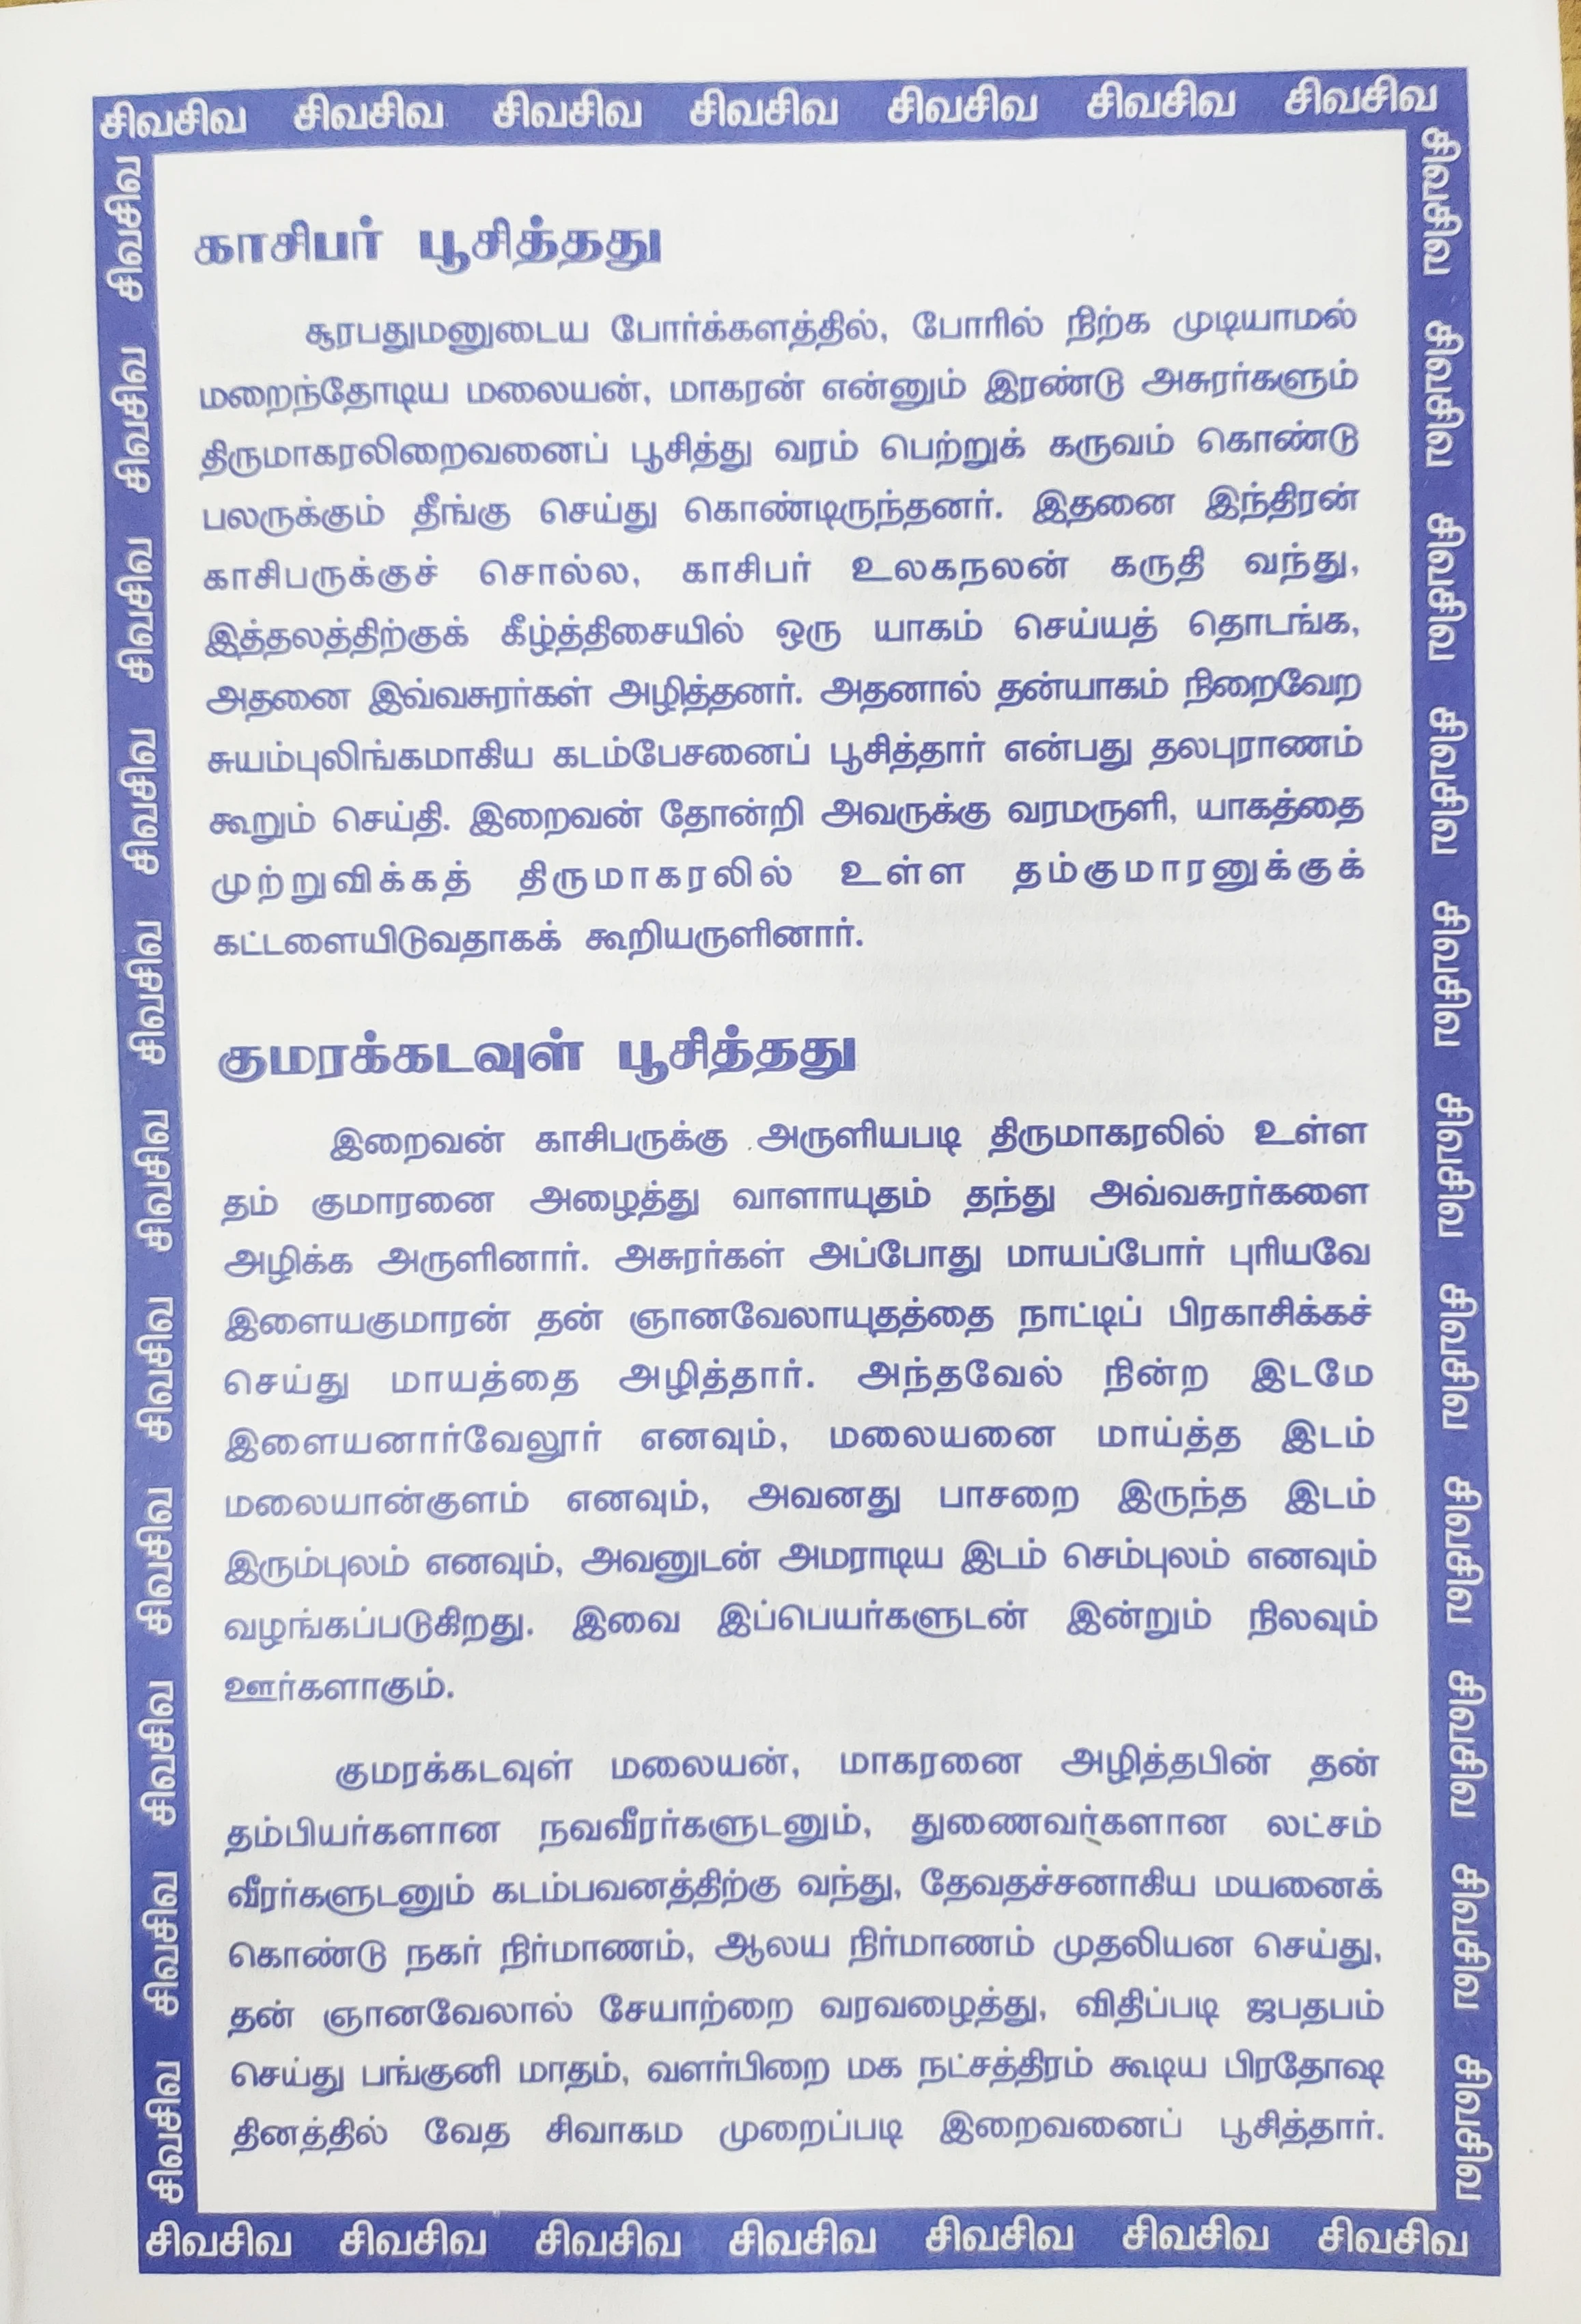 சிவசிவ சிவசிவ சிவசிவ சிவசிவ சிவசிவ சிவசிவ சிவசிவ
காசிபர் பூசித்தது
சூரபதுமனுடைய போர்க்களத்தில், போரில் நிற்க முடியாமல்
மறைந்தோடிய மலையன், மாகரன் என்னும் இரண்டு அசுரர்களும்
திருமாகரலிறைவனைப் பூசித்து வரம் பெற்றுக் கருவம் கொண்டு
பலருக்கும் தீங்கு செய்து கொண்டிருந்தனர். இதனை இந்திரன்
காசிபருக்குச் சொல்ல, காசிபர் உலகநலன் கருதி வந்து,
இத்தலத்திற்குக் கீழ்த்திசையில் ஒரு யாகம் செய்யத் தொடங்க,
அதனை இவ்வசுரர்கள் அழித்தனர். அதனால் தன்யாகம் நிறைவேற
சுயம்புலிங்கமாகிய கடம்பேசனைப் பூசித்தார் என்பது தலபுராணம்
கூறும் செய்தி. இறைவன் தோன்றி அவருக்கு வரமருளி, யாகத்தை
முற்றுவிக்கத் திருமாகரலில் உள்ள தம்குமாரனுக்குக்
கட்டளையிடுவதாகக் கூறியருளினார்.
குமரக்கடவுள் பூசித்தது
இறைவன் காசிபருக்கு அருளியபடி திருமாகரலில் உள்ள
தம் குமாரனை அழைத்து வாளாயுதம் தந்து அவ்வசுரர்களை
அழிக்க அருளினார். அசுரர்கள் அப்போது மாயப்போர் புரியவே
இளையகுமாரன் தன் ஞானவேலாயுதத்தை நாட்டிப் பிரகாசிக்கச்
செய்து மாயத்தை அழித்தார். அந்தவேல் நின்ற இடமே
இளையனார்வேலூர் எனவும், மலையனை மாய்த்த இடம்
மலையான்குளம் எனவும், அவனது பாசறை இருந்த இடம்
இரும்புலம் எனவும், அவனுடன் அமராடிய இடம் செம்புலம் எனவும்
வழங்கப்படுகிறது. இவை இப்பெயர்களுடன் இன்றும் நிலவும்
ஊர்களாகும்.
குமரக்கடவுள் மலையன், மாகரனை அழித்தபின் தன்
தம்பியர்களான நவவீரர்களுடனும், துணைவர்களான லட்சம்
வீரர்களுடனும் கடம்பவனத்திற்கு வந்து, தேவதச்சனாகிய மயனைக்
கொண்டு நகர் நிர்மாணம், ஆலய நிர்மாணம் முதலியன செய்து,
தன் ஞானவேலால் சேயாற்றை வரவழைத்து, விதிப்படி ஜபதபம்
செய்து பங்குனி மாதம், வளர்பிறை மக நட்சத்திரம் கூடிய பிரதோஷ
தினத்தில் வேத சிவாகம முறைப்படி இறைவனைப் பூசித்தார்.
சிவசிவ சிவசிவ சிவசிவ சிவசிவ சிவசிவ சிவசிவ சிவசிவ
சிவசிவ சிவசிவ சிவசிவ சிவசிவ சிவசிவ சிவசிவ சிவசிவ சிவசிவ சிவசிவ சிவசிவ சிவசிவ
சிவசிவ சிவசிவ சிவசிவ சிவசிவ சிவசிவ சிவசிவ சிவசிவ சிவசிவ சிவசிவ சிவசிவ சிவசிவ